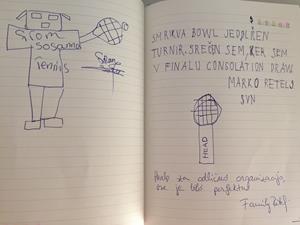 Srom
sosama
Tennis
SMRKVA BOWL JE ODLIČEN
TURNIR. SREČEN SEM, KER SEM
V FINALU CONSOLATION DRAWS
MARKO RETELJ
SVN
HEAD
Hvala za odlično organizacijo,
vse je bilo perfektno
Family